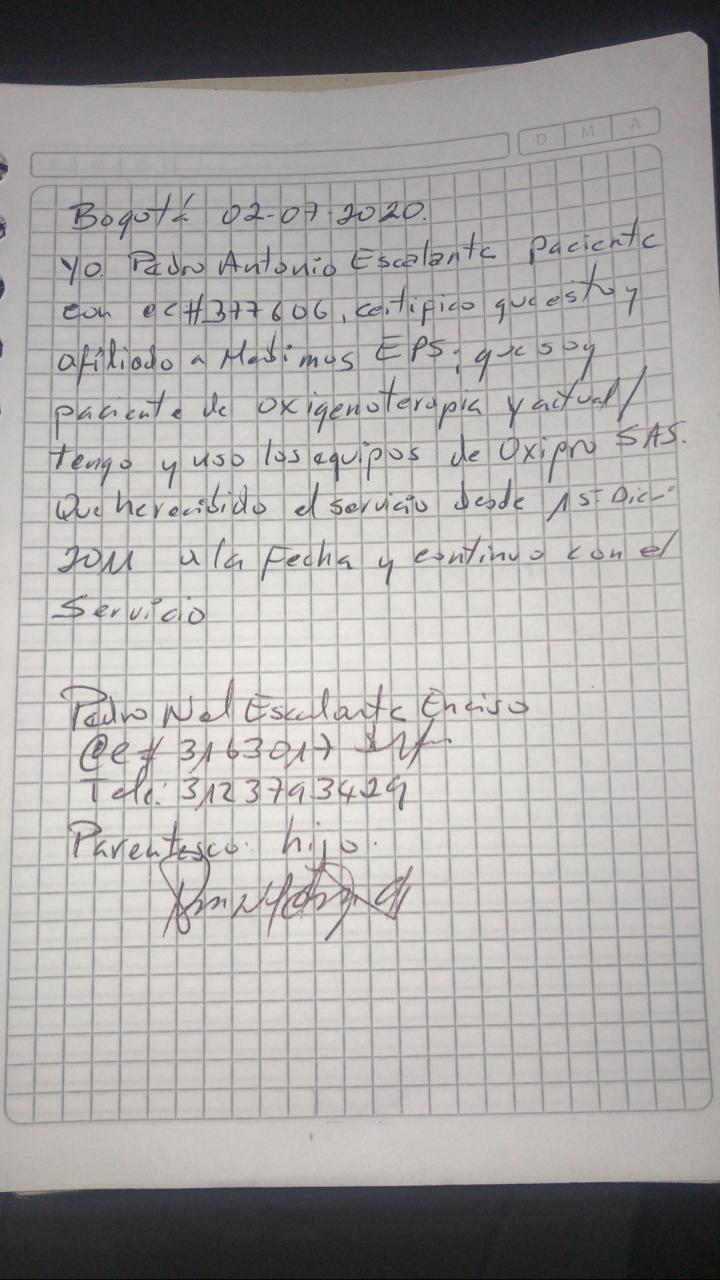 D M A
Bogotá 02-07-2020.
Yo. Pedro Antonio Escalante paciente
con cc#377606, certifico que estoy
afiliado a Medimas EPS; que soy
paciente de oxigenoterapia y actual/
tengo y uso los equipos de Oxipro SAS.
Que he recibido el servicio desde 15-Dic-
2011 a la Fecha y continuo con el
Servicio
Pedro Nel Escalante Enciso
CC# 3163017
Tele: 3123793429
Parentesco: hijo.